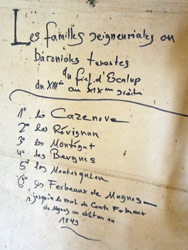 Les familles seigneuriales ou
baroniales tenantes
du fief d'Escalup
du XIIIe au XIXe siècles
1° les Cazenove
2° les Révignan
3° les Montégut
4° les Bergues
5° les Montesquiou
6° les Ferbeaux de Magnos
jusqu'au
de Magnos au château en
1843